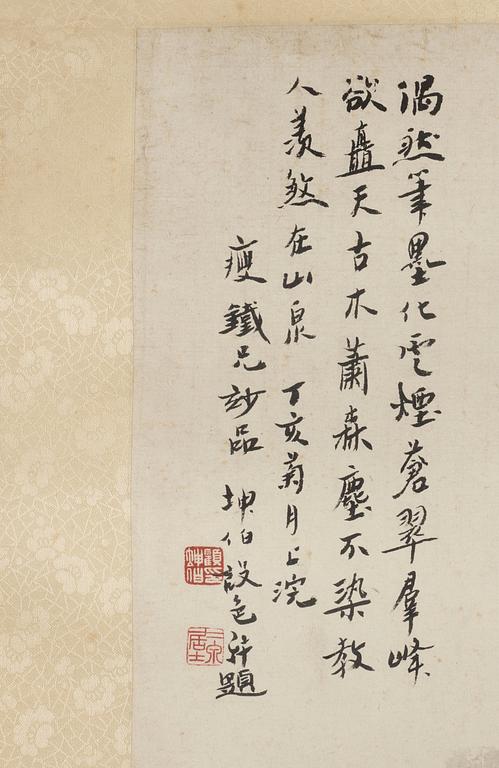 偶然筆墨化雲煙蒼翠羣峰
欲矗天古木蕭森塵不染教
人羨煞在山泉 丁亥菊月上浣
瘦鐵兄玅品 坤伯設色并題